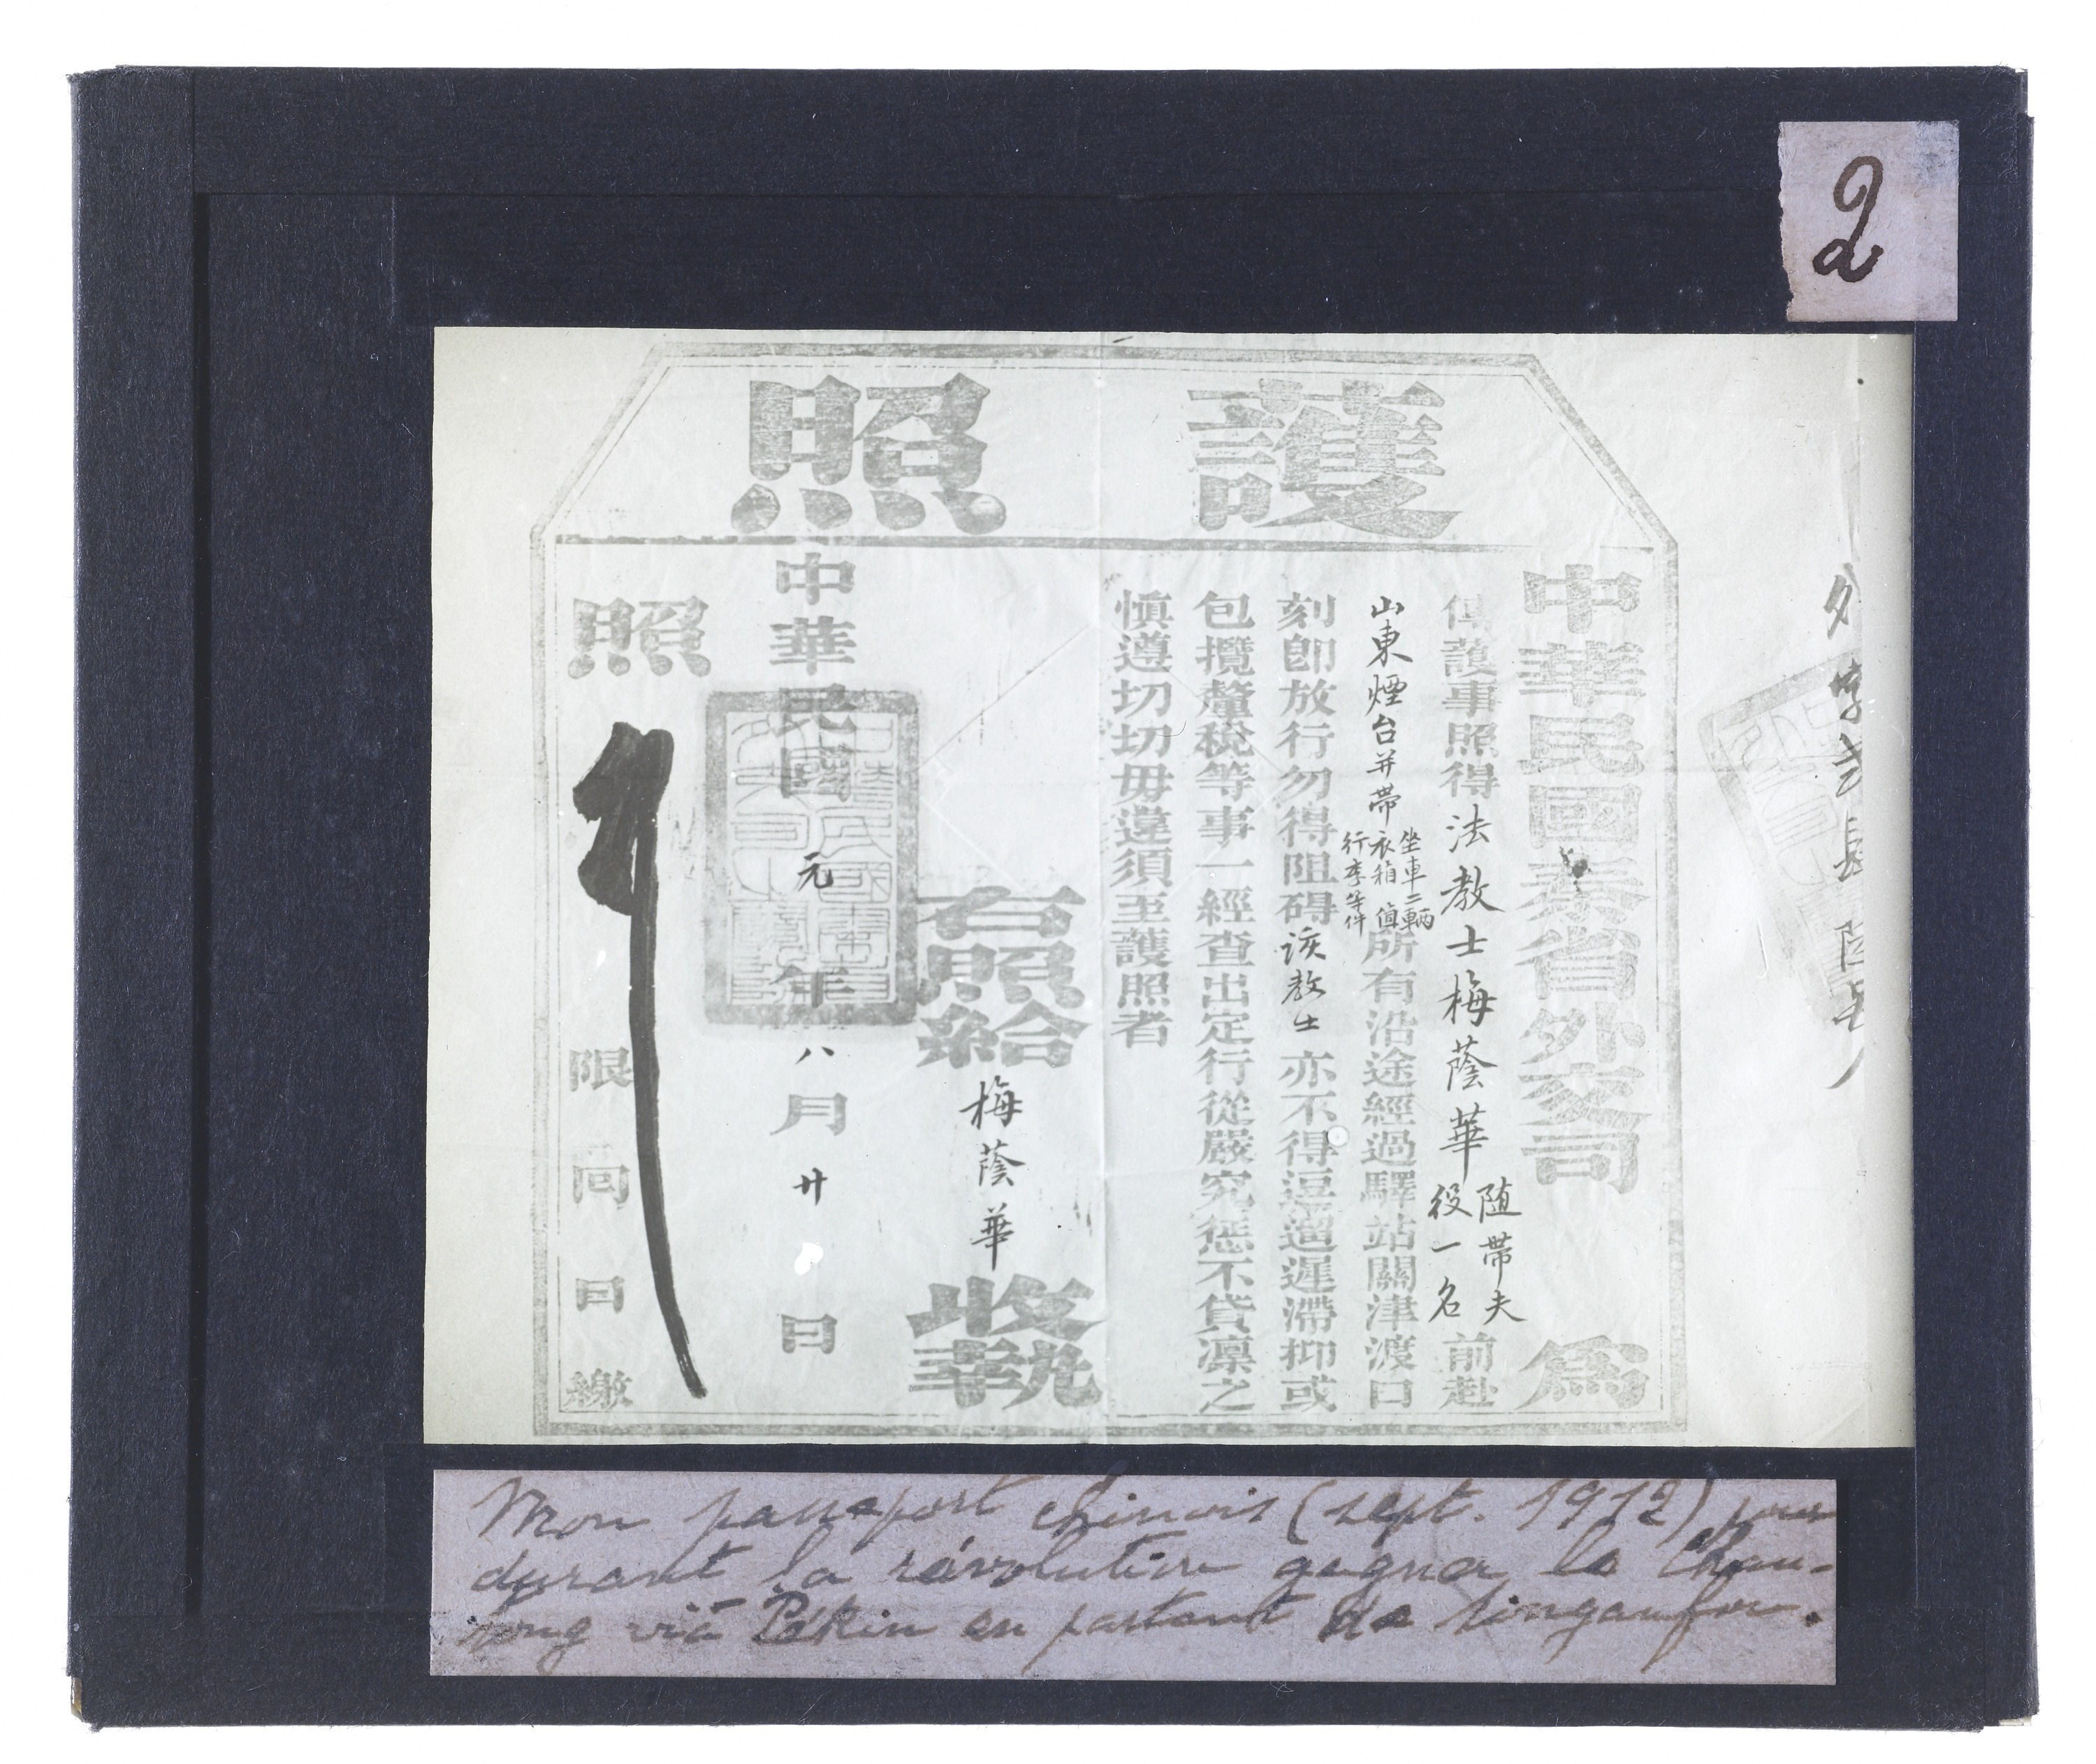 2
護照
中華民國秦省外交司 為
給護事照得法教士梅蔭華隨帶夫役一名前赴
山東煙台并帶坐車二輛衣箱行李等件所有沿途經過驛站關津渡口
刻即放行勿得阻碍該教士亦不得逗遛遲滯抑或
包攬釐稅等事一經查出定行從嚴究惩不貸凛之
慎遵切切毋違須至護照者
右照給梅蔭華收執
中華民國元年八月廿日
照
限 回日繳
Mon passeport chinois (sept. 1912) pour
durant la révolution gagner le Chan-
tong via Pékin en partant de Singanfou.